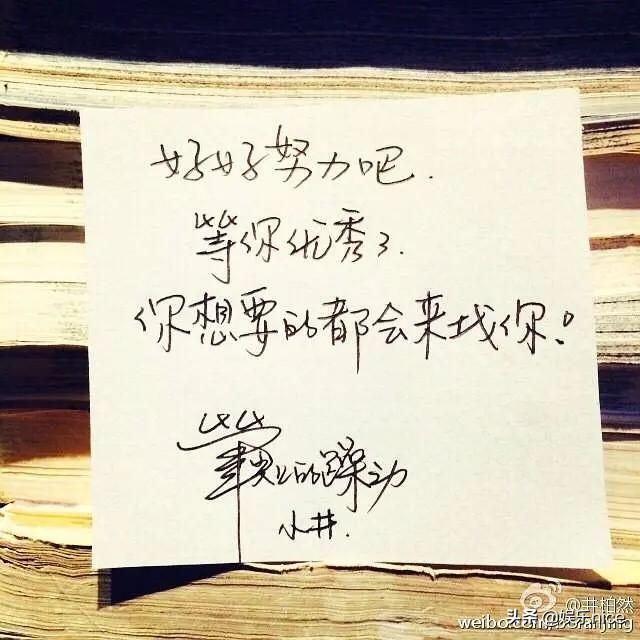 好好努力吧.
等你优秀了.
你想要的都会来找你!
的躁动
小井.
@井柏然
头条 @娱乐nice